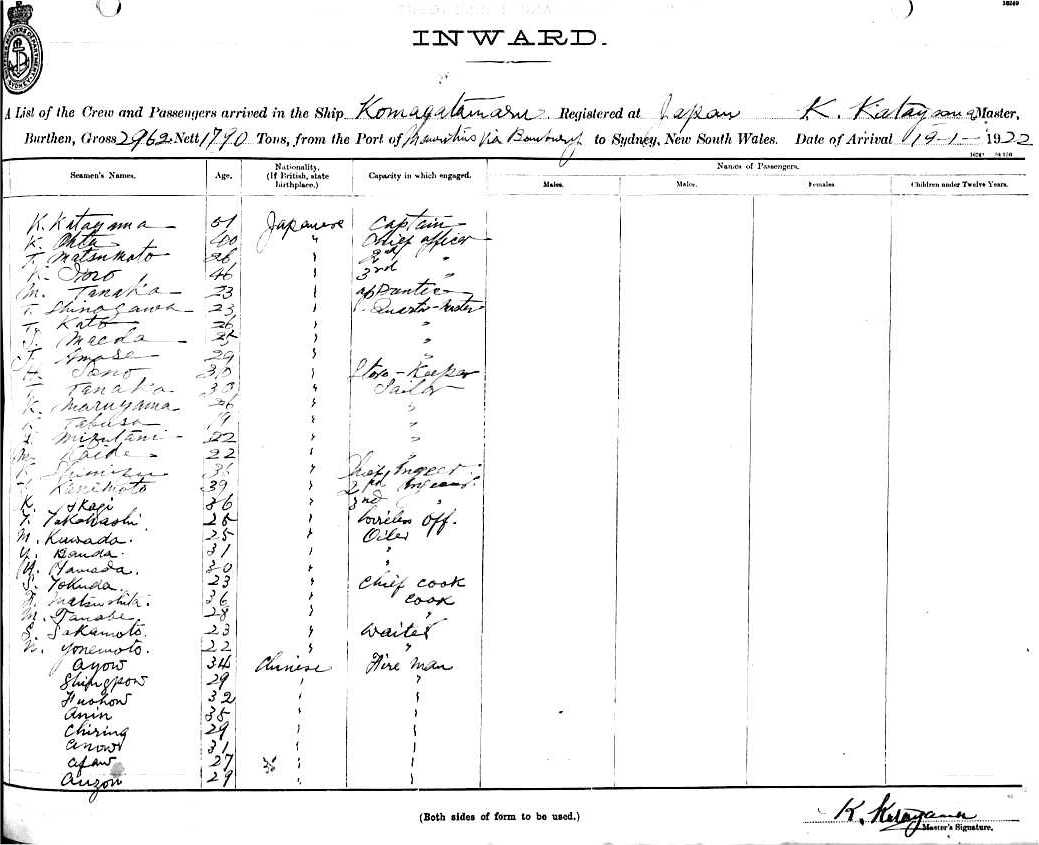 INWARD.
A List of the Crew and Passengers arrived in the Ship Komagatamaru Registered at Japan K. Katayama Master,
Burthen, Gross 2962 Nett 1790 Tons, from the Port of Mauritius via Bunbury to Sydney, New South Wales. Date of Arrival 19-1-1922
Seamen's Names. Age. Nationality. (If British, state birthplace.) Capacity in which engaged. Names of Passengers.
Males. Males. Females Children under Twelve Years.
K. Katayama 51 Japanese Captain
K. Ohta 40 " Chief officer
T. Matsumoto 26 " 2nd "
46 " 3rd "
M. Tanaka 23 "
T. Shinogawa 23 " Quarter-master
T. Kato 26 " "
Maeda 25 " "
T. 29 " "
H. Sono 30 " Store-Keeper
T. Tanaka 30 " Sailor
K. Maruyama 26 " "
19 " "
Mizutani 22 " "
M. 22 " "
Shimizu " Chief
Kanimoto 39 " 2nd
K. 36 " 3rd "
T. Takahashi 28 " Wireless Off.
M. Kuwada. 25 " Oiler
Y. Banda. 31 " "
Yamada. 30 " "
S. Tokuda. 23 " Chief cook
Matsushita. 36 " cook
M. Tanabe. 28 " "
S. Sakamoto. 23 " Waiter
N. Yonemoto. 22 " "
Ayow 34 Chinese Fire man
Shingpow 29 " "
Fuohow 32 " "
Anin 35 " "
Chiring 29 " "
Anow 31 " "
Afaw 27 " "
Auzon 29 " "
(Both sides of form to be used.)
K. Katayama
Master's Signature.